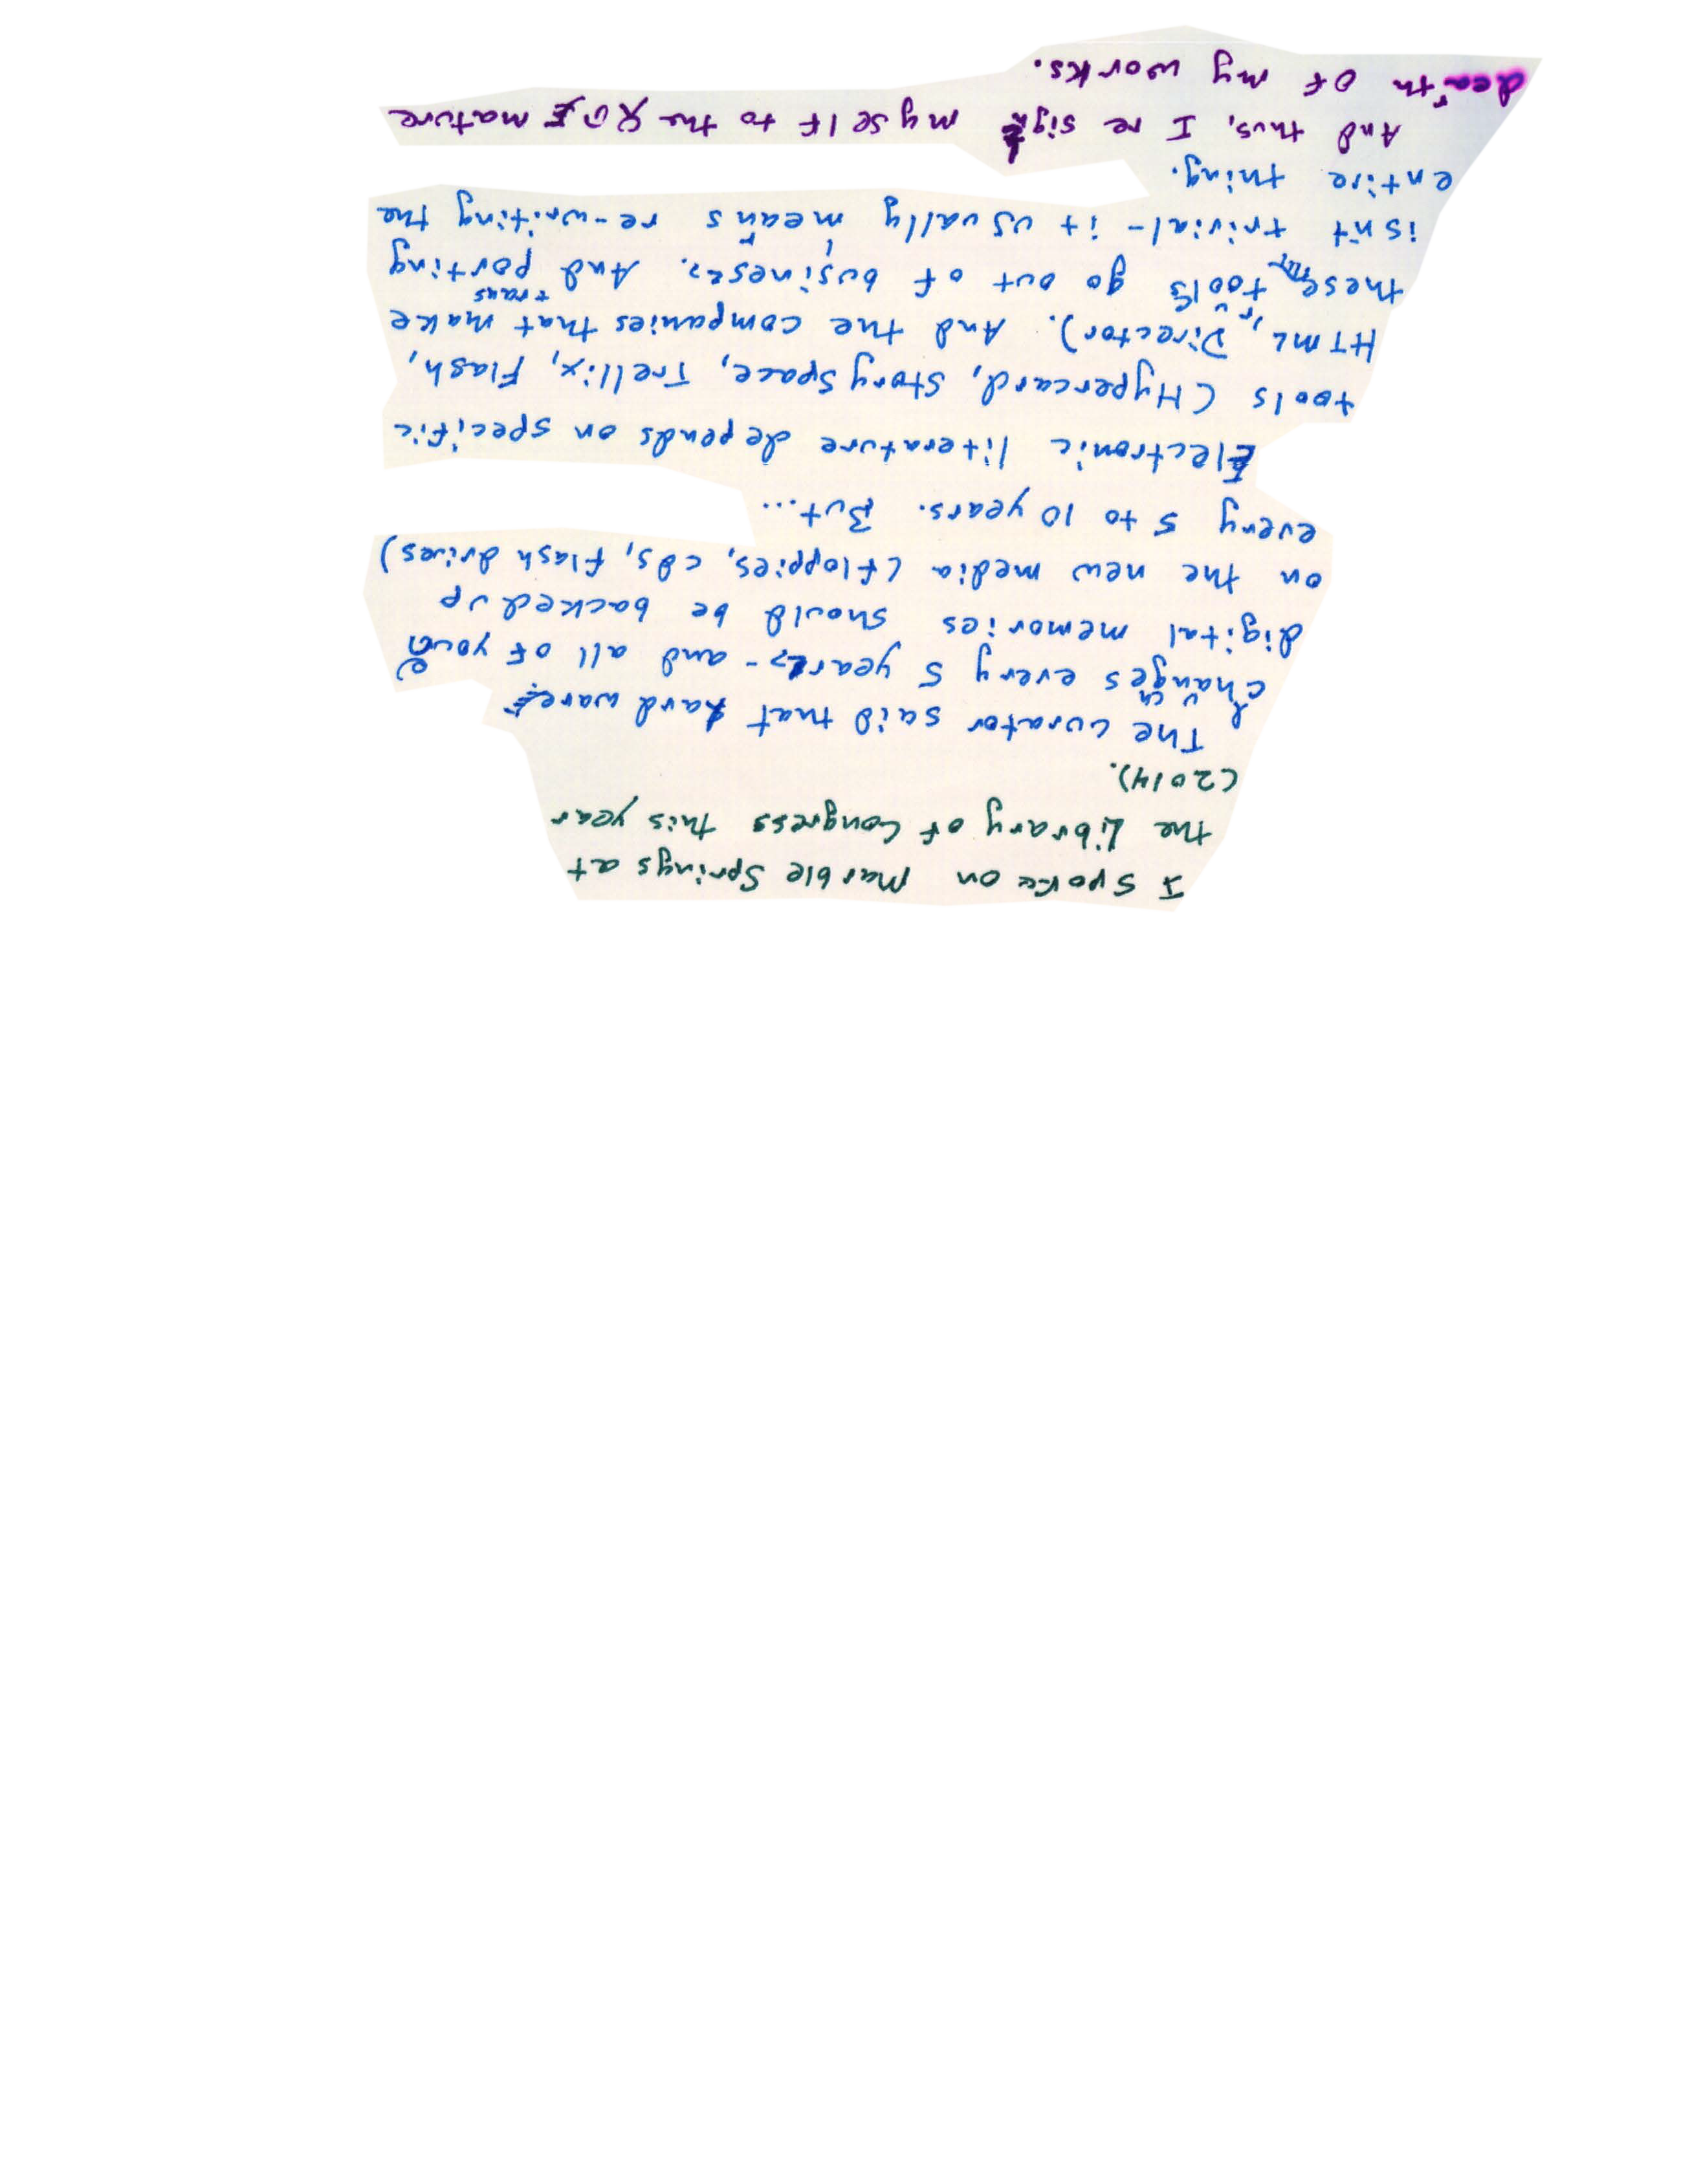 I spoke on Marble Springs at
the Library of Congress this year
(2014).
The curator said that hardware
changes every 5 years - and all of your
digital memories should be backed up
on the new media (floppies, cds, flash drives)
every 5 to 10 years. But...
Electronic literature depends on specific
tools (Hypercard, Story Space, Trellix, Flash,
HTML, Director). And the companies that make
trans
these tools go out of business. And porting
isn't trivial - it usually means re-writing the
entire thing.
And thus, I resign myself to the mature
death of my works.